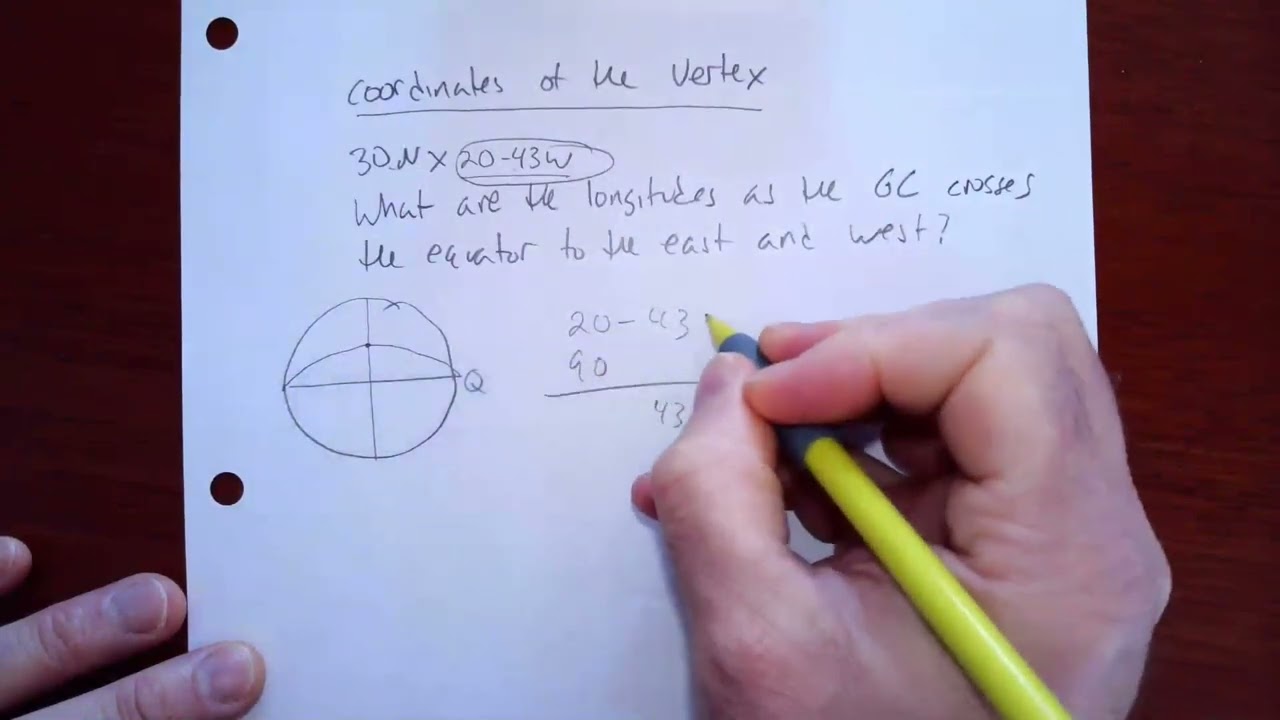 coordinates of the vertex
30N x 20-43W
What are the longitudes as the GC crosses
the equator to the east and west?
Q
20-43
90
43